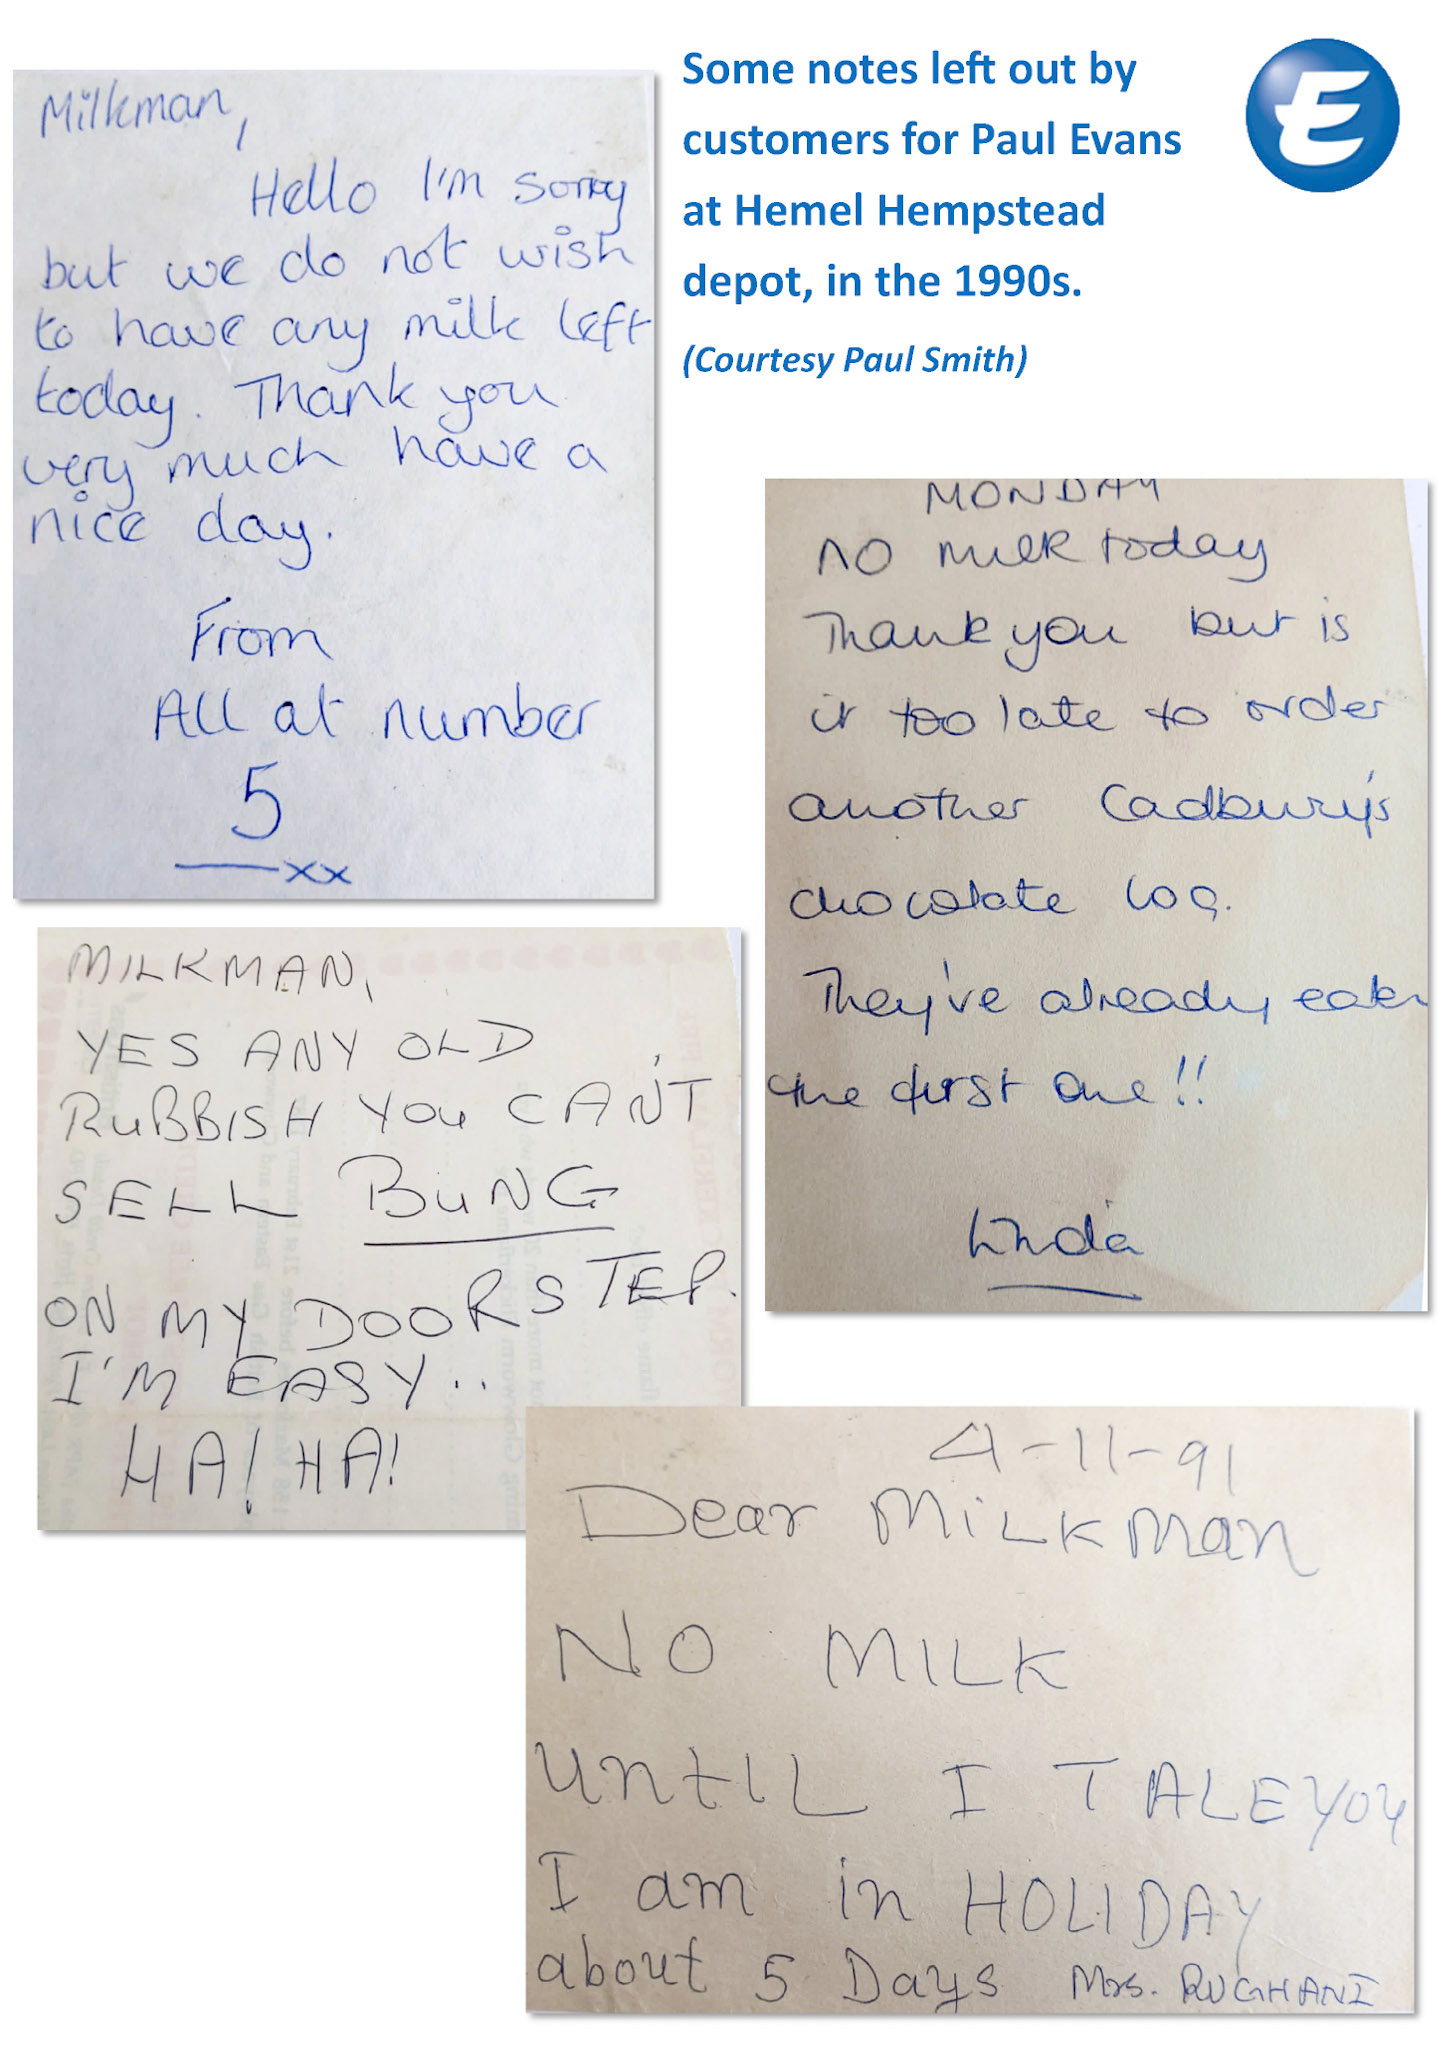 Some notes left out by
customers for Paul Evans
at Hemel Hempstead
depot, in the 1990s.
(Courtesy Paul Smith)
E
Milkman,
Hello I'm sorry
but we do not wish
to have any milk left
today. Thank you
very much have a
nice day.
From
All at number
5
xx
MONDAY
NO milk today
Thank you but is
it too late to order
another Cadbury's
chocolate log.
They've already eaten
the first one!!
Linda
MILKMAN,
YES ANY OLD
RUBBISH YOU CAN'T
SELL BUNG
ON MY DOORSTEP.
I'M EASY..
HA! HA!
4-11-91
Dear MiLKman
NO MILK
UntIL I TALE YOU
I am in HOLIDAY
about 5 Days Mrs. RUGHANI